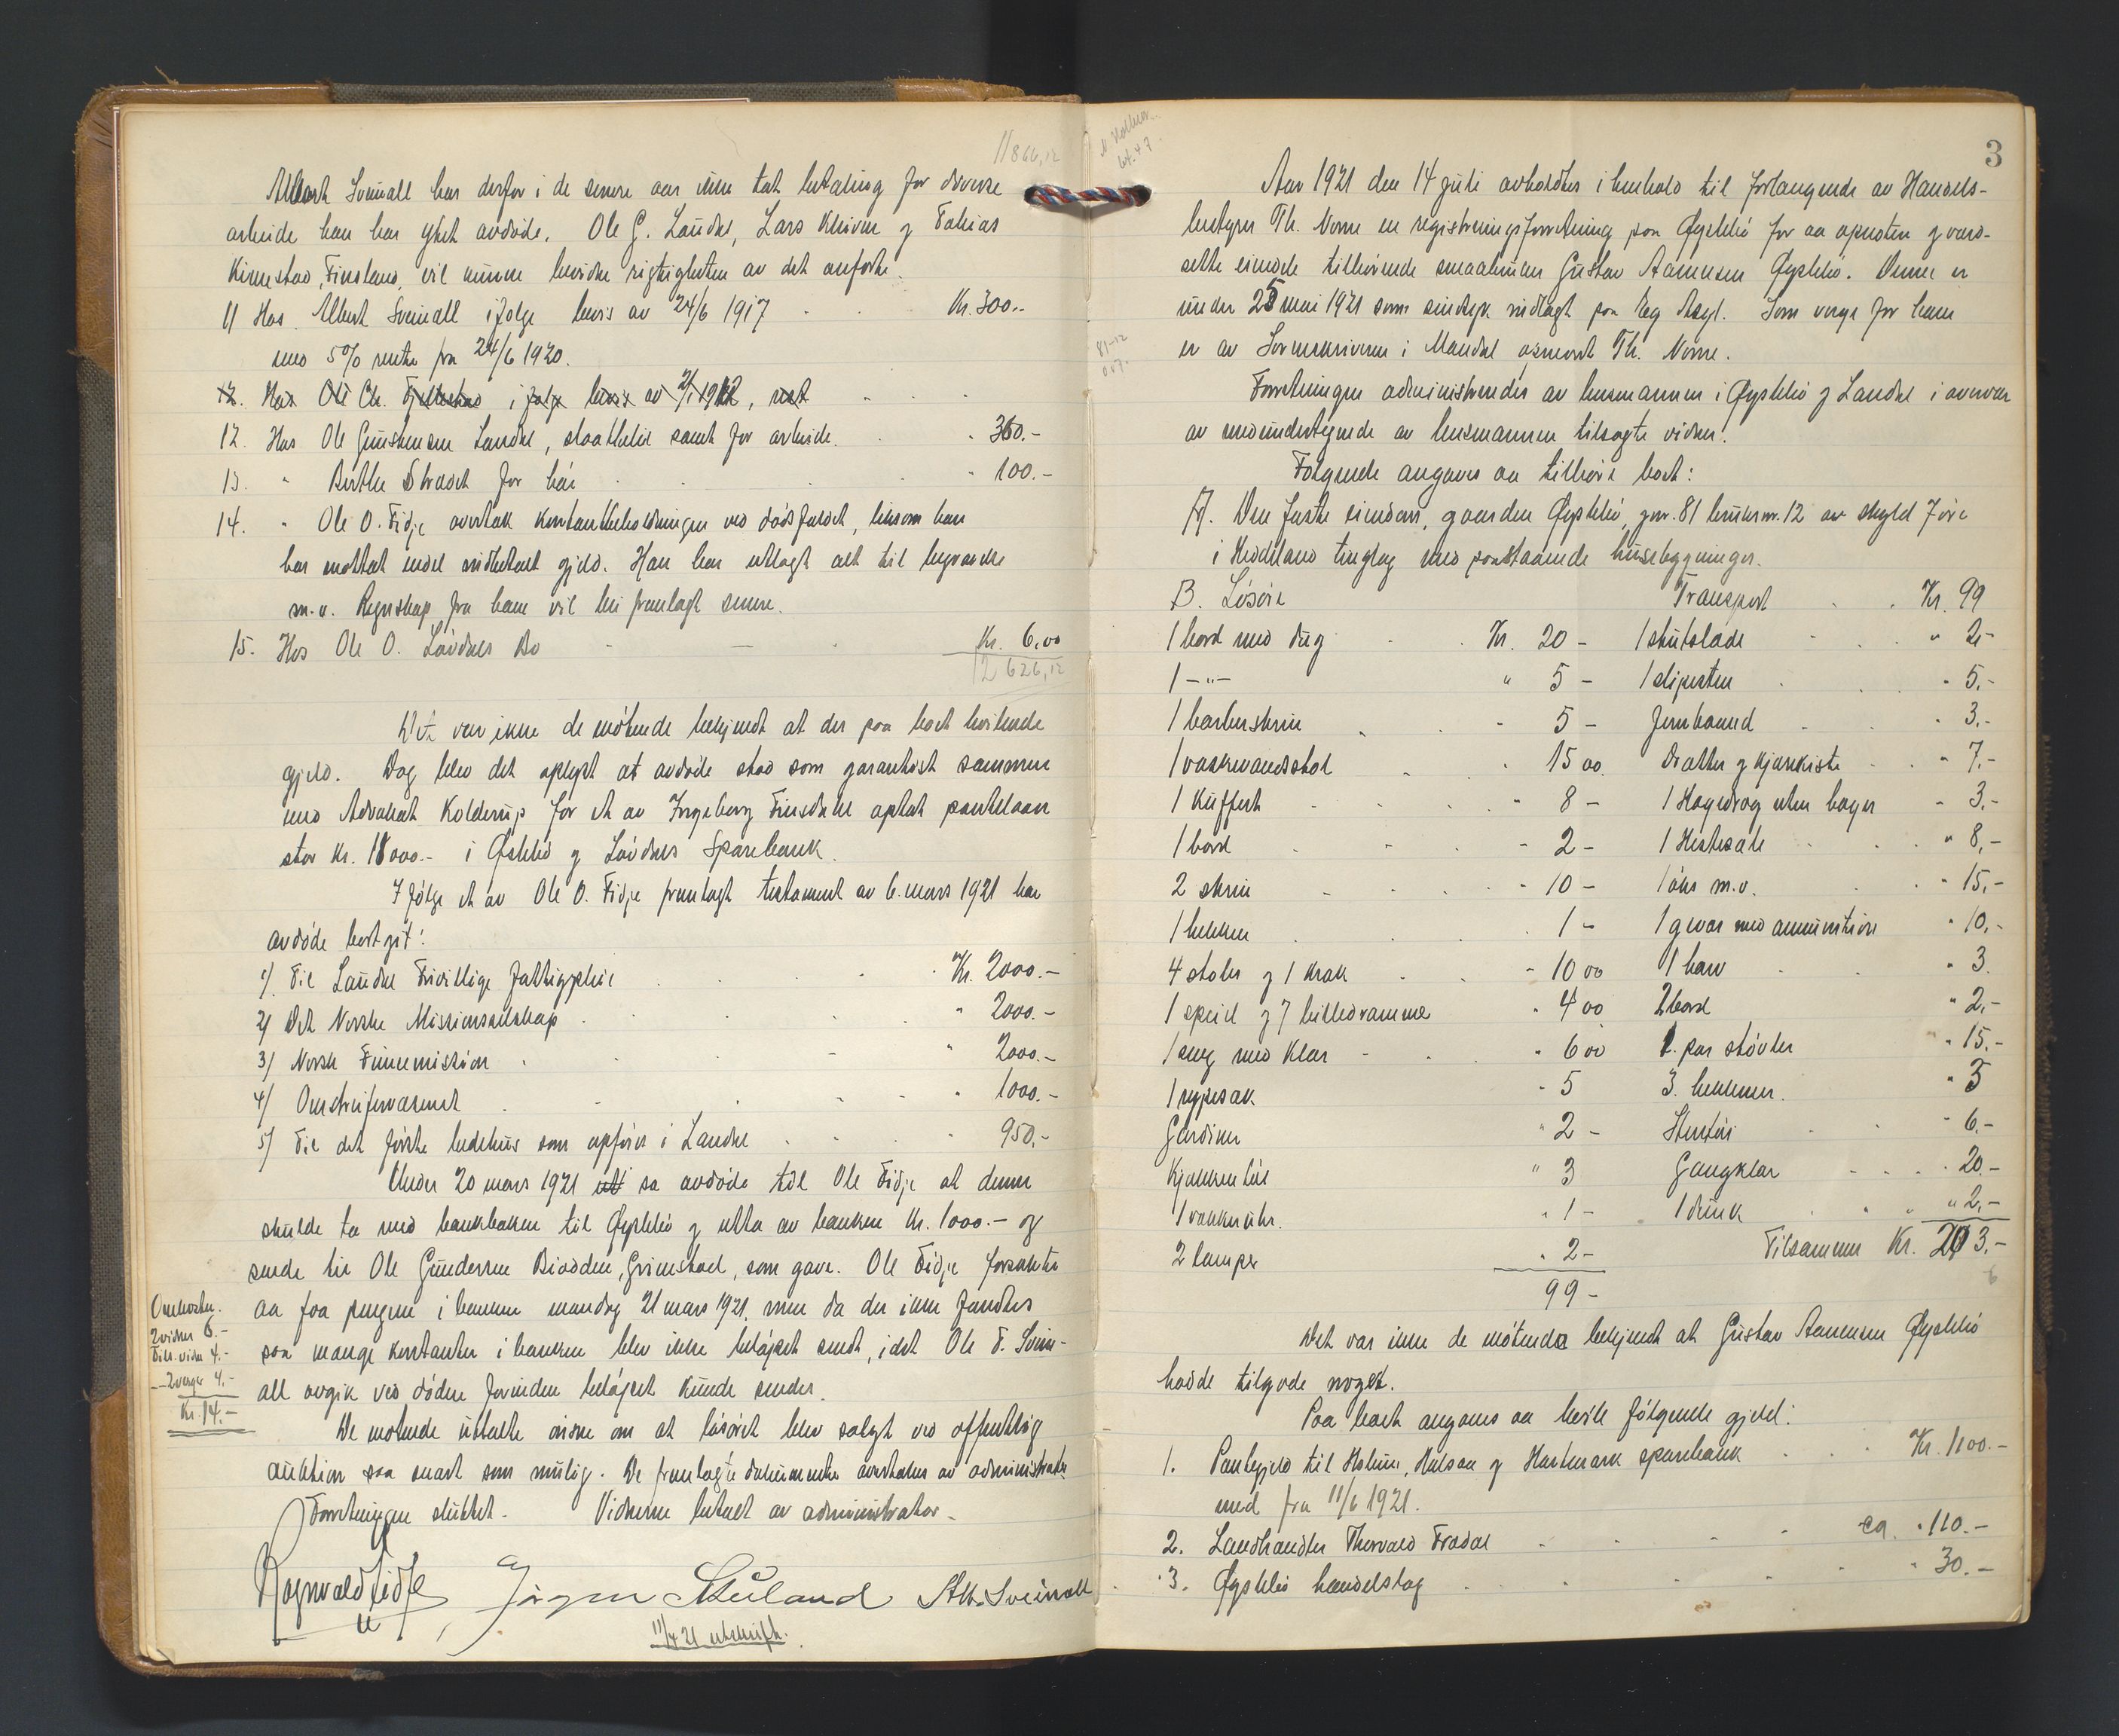 11866,12
Albert Sveinall har derfor i de senere aar ikke tat betaling for diverse
arbeide han har ytet avdøde. Ole G. Laudal, Lars Kleiven og Tobias
Kirkestad, Finsland, vil kunne bevidne rigtigheten av det anførte.
11 Hos Albert Sveinall ifølge bevis av 24/6 1917 Kr. 300.-
med 5% rente fra 24/6 1920.
12. Hos Ole Ch. Fjellestad ifølge bevis av 2/1 1912, rest
12. Hos Ole Gundersen Laudal, slaatteleie samt for arbeide. 360.-
13. " Berthe Stradet for høi 100.-
14. " Ole O. Fidje overtok kontantbeholdningen ved dødsfaldet, likesom han
har mottat endel indbetalt gjeld. Han har utlagt alt til begravelse
m.v. Regnskap fra ham vil bli fremlagt senere.
15. Hos Ole O. Løvdals Bo Kr. 6,00
12626,12
Det var ikke de møtende bekjendt at der paa boet hvilende
gjeld. Dog blev det oplyst at avdøde stod som garantist sammen
med Advokat Kolderup for et av Ingeborg Finsdahl optat pantelaan
stor Kr. 18000.- i Øislebø og Løvdals Sparebank.
Ifølge et av Ole O. Fidje fremlagt testament av 6. mars 1921 har
avdøde bortgit:
1/ Til Laudal Frivillige fattigpleie Kr. 2000.-
2/ Det Norske Missionsselskap " 2000.-
3/ Norsk Finnemission " 2000.-
4/ Omstreifervæsenet " 1000.-
5/ Til det første bedehus som opføres i Laudal " 950.-
Under 20 mars 1921 sa avdøde til Ole Fidje at denne
skulde ta med bankboken til Øyslebø og utta av banken Kr. 1000.- og
sende til Ole Gundersen Birødden, Grimstad, som gave. Ole Fidje forsøkte
aa faa pengene i banken mandag 21 mars 1921, men da der ikke fandtes
saa mange kontanter i banken blev ikke beløpet sendt, idet Ole T. Svein-
all avgik ved døden forinden beløpet kunde sendes.
De møtende uttalte ønske om at løsøret blev solgt ved offentlig
auktion saa snart som mulig. De fremlagte dokumenter overtokes av administrator
Forretningen sluttet. Vidnerne betalt av administrator.
Omkostn.
2 vidner 6.-
Till. vidne 4.-
2 verger 4.-
Kr. 14.-
Ragnvald Fidje Jørgen Stuland Alb. Sveinall
11/4 21 utskrift.
3
81-12
Aar 1921 den 14 juli avholdtes i henhold til forlangende av Handels-
bestyrer Th. Nome en registreringsforretning paa Øyslebø for aa opnotere og værd-
sætte eiendele tilhørende smaabruker Gustav Aanensen Øyslebø. Denne er
under 25 mai 1921 som sindssyk indlagt paa Eg Asyl. Som verge for ham
er av Sorenskriveren i Mandal opnevnt Th. Nome.
Forretningen administrertes av lensmannen i Øyslebø og Laudal i overvær
av medundertegnede av lensmannen tilsagte vidner.
Følgende angaves aa tilhøre boet:
A. Den faste eiendom, gaarden Øyslebø, gnr. 81 bruksnr. 12 av skyld 7 øre
i Heddeland tinglag med paastaaende husebygninger.
B. Løsøre Transport Kr. 99
1 bord med dug Kr. 20 - 1 stutslade " 2.-
1 -"- " 5 - 1 slipesten " 5.-
1 barberskrin " 5 - Jernbaand " 3.-
1 vaskevandsstol " 15 00 Drætter og kjørekiste " 7.-
1 Kuffert " 8 - 1 Høgedrog uten bøger " 3.-
1 bord " 2 - 1 Hestesale " 8.-
2 skrin " 10 - 1 øks m.v. " 15.-
1 bekken 1 - 1 gevær med ammunition " 10.-
4 stoler og 1 krak " 10 00 1 harv " 3.
1 speil og 7 billedrammer " 4 00 2 bord " 2.-
1 seng med klær " 6 00 1 par støvler " 15.-
1 rypesæk " 5 3 bekkener " 3
Gardiner " 2 - Stentøi " 6.-
Kjøkkentøi " 3 Gangklær 20.-
1 vækkeruhr. " 1 - 1 dunk " 2.-
2 lamper " 2 - Tilsammen Kr. 203.-
99 -
Det var ikke de møtende bekjendt at Gustav Aanensen Øyslebø
hadde tilgode noget.
Paa boet angaves aa hvile følgende gjeld:
1. Pantegjeld til Holum, Halsaa og Hartmark sparebank Kr. 1100.-
med fra 11/6 1921.
2. Landhandler Thorvald Fradal ca. " 110.-
3. Øyslebø handelslag " 30.-